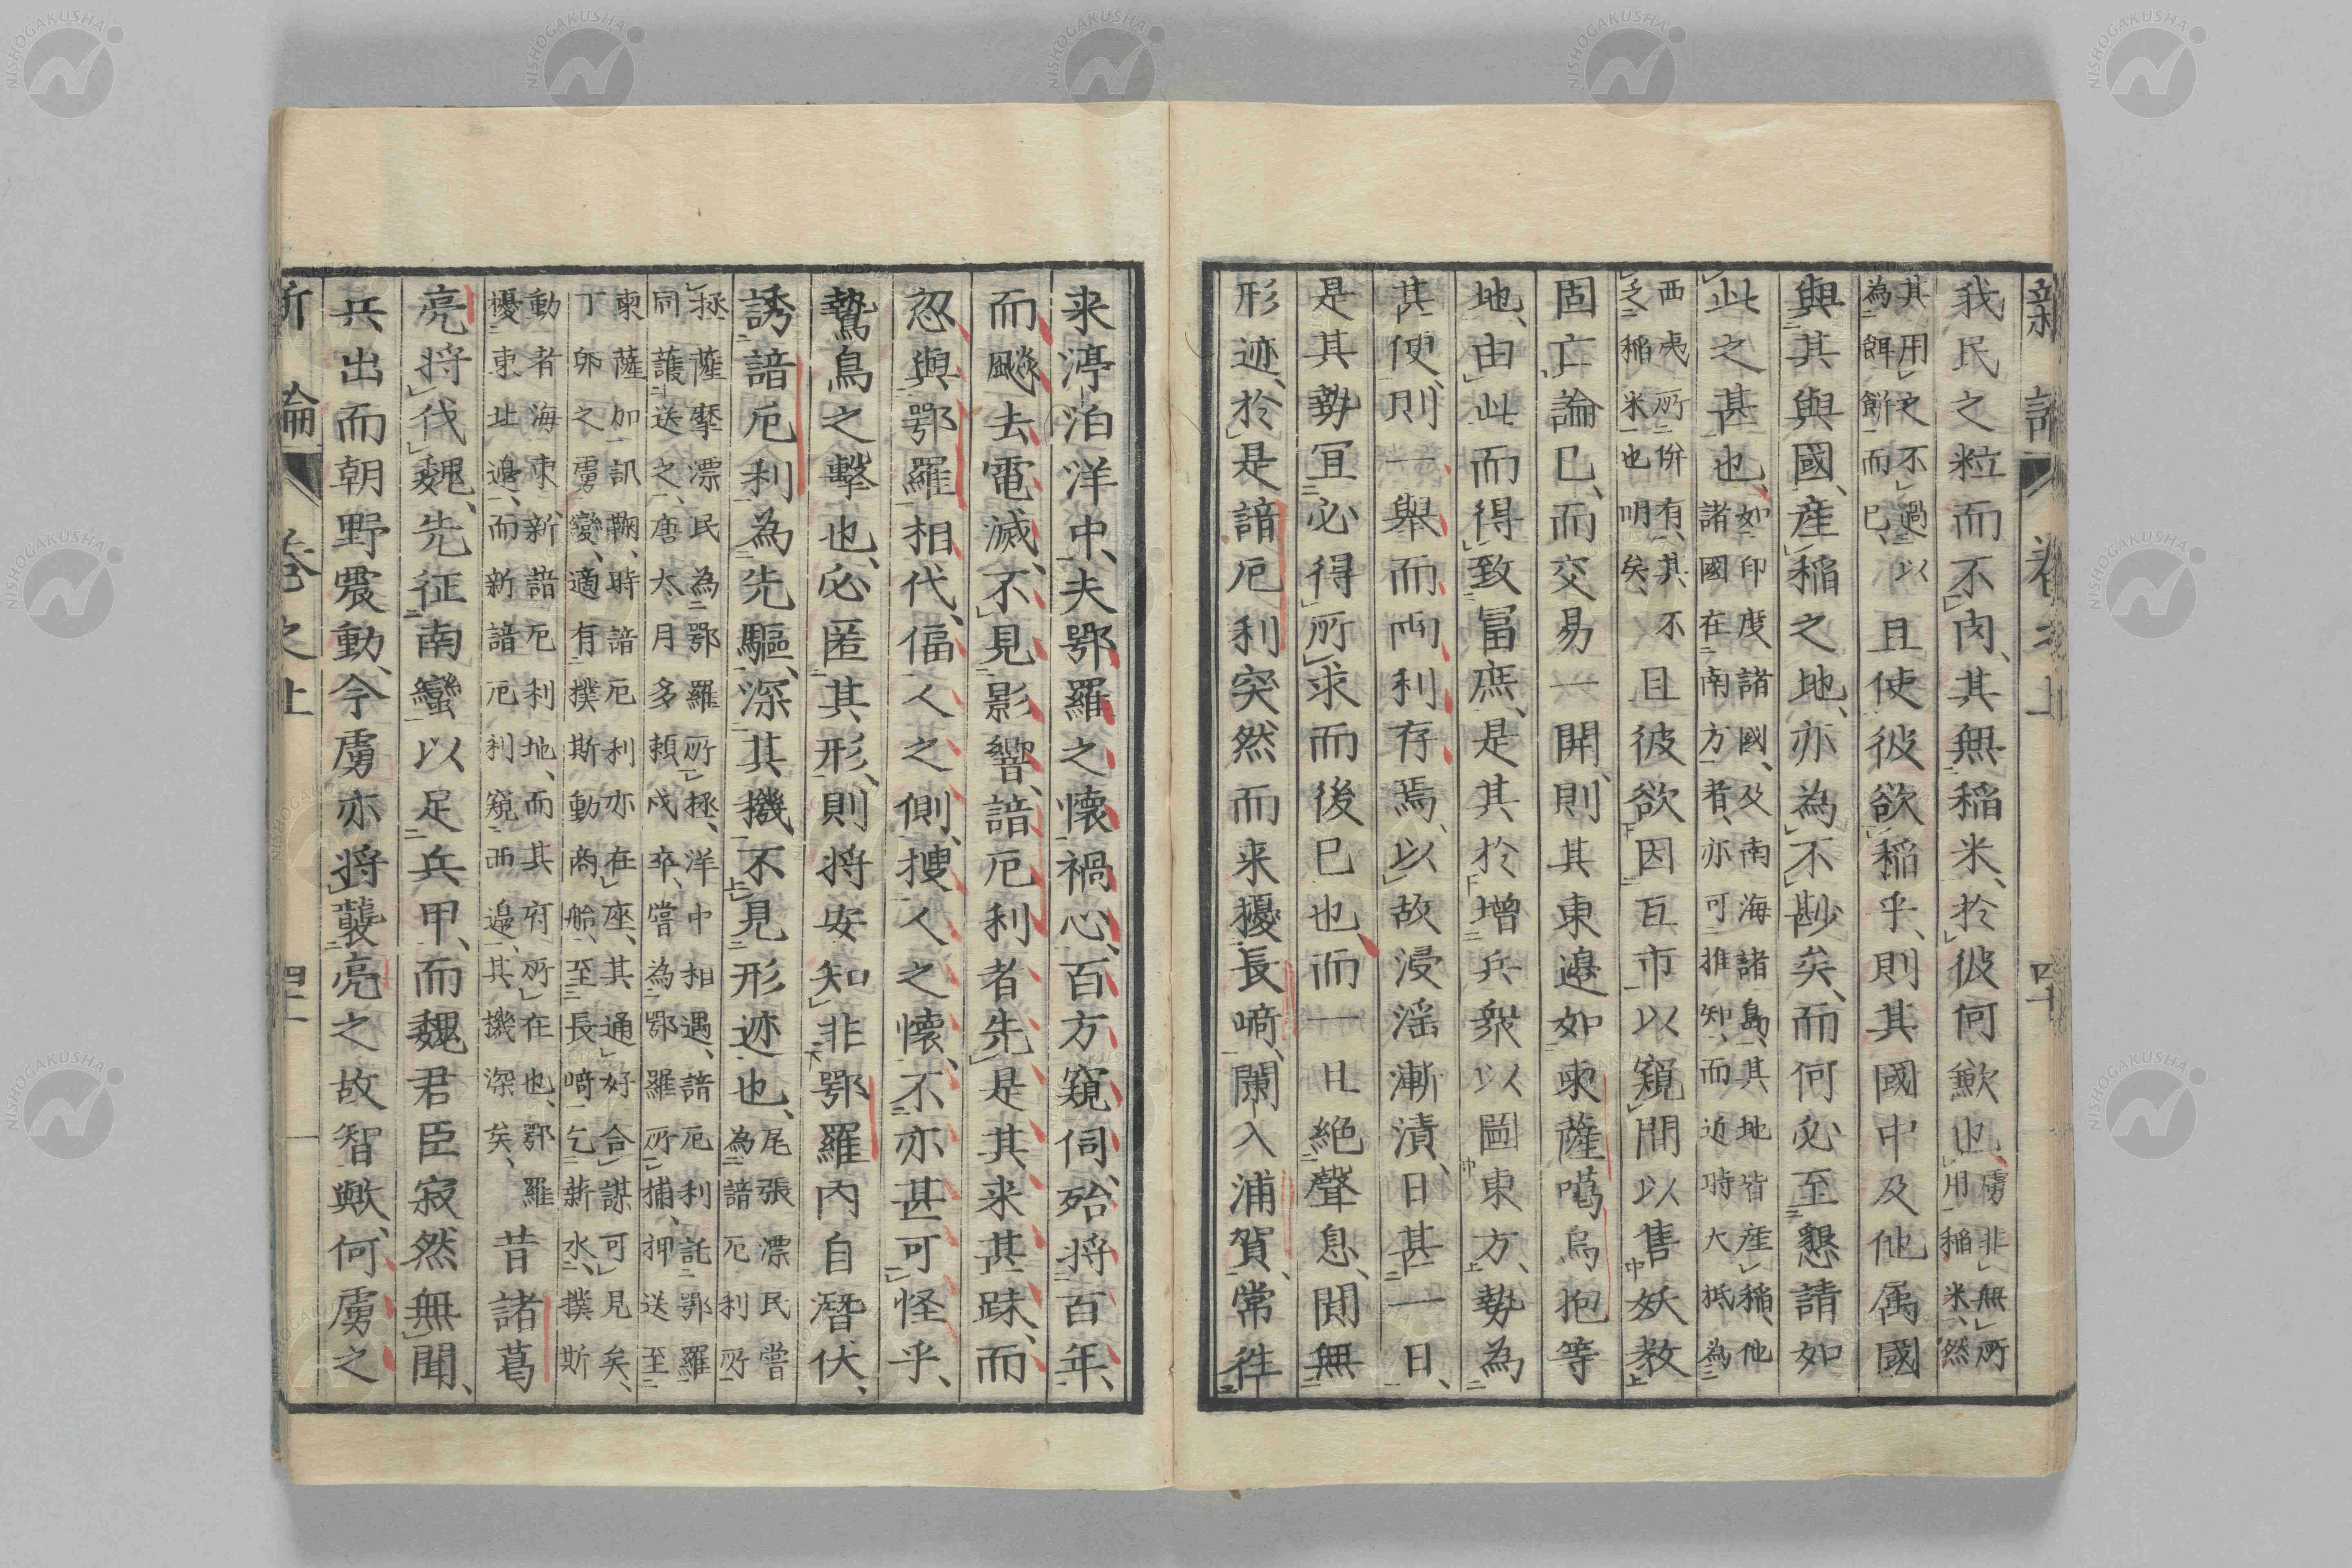 新論 卷之上 四十
我民之粒而不肉、其無稲米、於彼何歉也、虜非無所用稲米、然
其用之不過以為餌餅而已、且使彼欲稲乎、則其國中及他属國
與其與國、産稲之地、亦為不尠矣、而何必至懇請如
此之甚也、如印度諸國、及南海諸島、其地皆産稲、他諸國在南方者、亦可推知、而近時大抵為
西夷所併有、其不乏稲米也明矣、且彼欲因互市以窺間以售妖教
固亡論已、而交易一開、則其東邉如東薩噶烏抱等
地、由此而得致冨庶、是其於増兵衆以圖東方、勢為
甚便、則一舉而両利存焉、以故浸淫漸漬、日甚一日、
是其勢冝必得所求而後已也、而一旦絶聲息、閴無
形迹、於是諳厄利突然而来擾長﨑、闌入浦賀、常徃
来渟泊洋中、夫鄂羅之懐禍心、百方窺伺、殆将百年、
而飈去電滅、不見影響、諳厄利者先是其来甚踈、而
忽與鄂羅相代、偪人之側、捜人之懐、不亦甚可怪乎、
鷙鳥之撃也、必匿其形、則将安知非鄂羅内自潛伏、
誘諳厄利為先驅、深其機不見形迹也、尾張漂民嘗為諳厄利所
拯、薩摩漂民為鄂羅所拯、洋中相遇、諳厄利託鄂羅同護送之、唐太月多頼戍卒、嘗為鄂羅所捕、押送至
東薩加訊鞫、時諳厄利亦在座、其通好合謀可見矣、丁卯之虜變、適有撲斯動商舶、至長﨑乞薪水、撲斯
動者海東新諳厄利地、而其府所在也、鄂羅擾東北邉、而新諳厄利窺西邉、其機深矣、昔諸葛
亮将伐魏、先征南蠻以足兵甲、而魏君臣寂然無聞、
兵出而朝野震動、今虜亦将襲亮之故智歟、何虜之
新論 卷之上 四十一